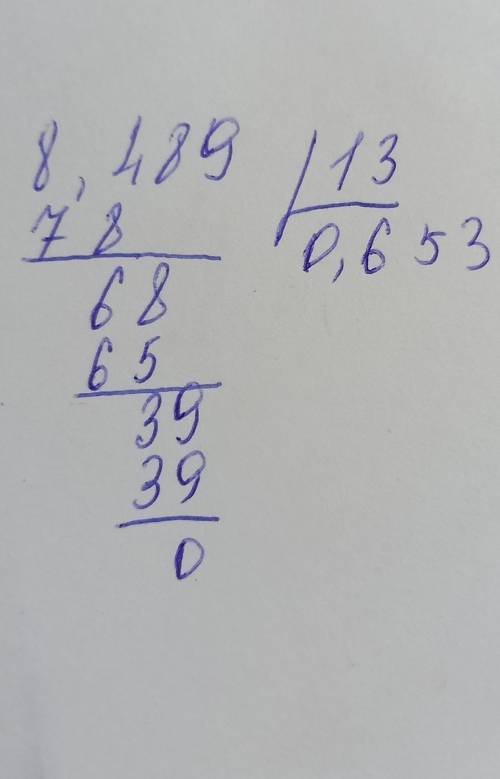 8,489 | 13
78 0,653
68
65
39
39
0